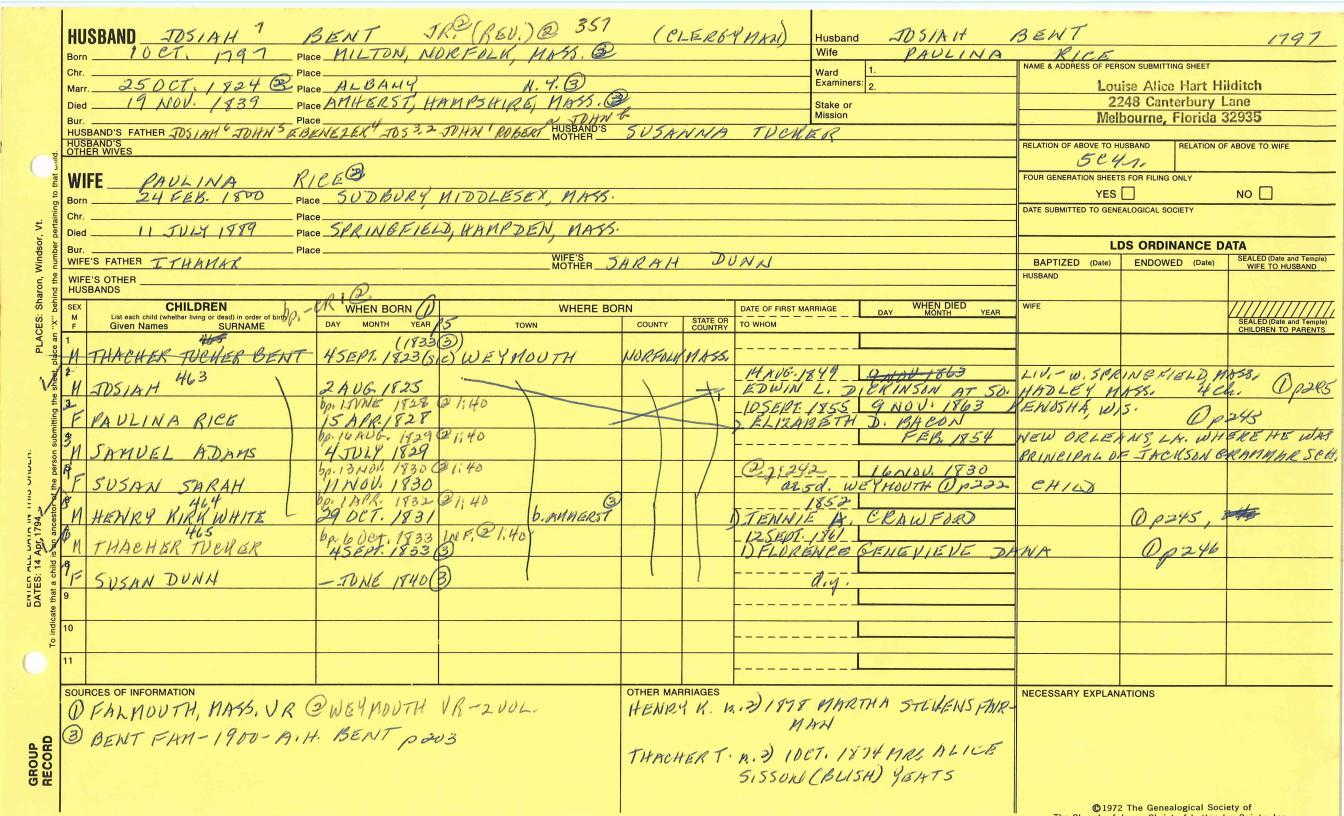 HUSBAND JOSIAH 7 BENT JR. ② (REV.) @ 357 (CLERGYMAN)
Born 1 OCT. 1797 Place MILTON, NORFOLK, MASS. ③
Chr. Place
Marr. 25 OCT. 1824 ③ Place ALBANY N.Y. ③
Died 19 NOV. 1839 Place AMHERST, HAMPSHIRE, MASS. ③
Bur. Place
HUSBAND'S FATHER JOSIAH 6 JOHN 5 EBENEZER 4 JOS 3,2 JOHN 1 ROBERT JOHN HUSBAND'S MOTHER SUSANNA TUCKER
HUSBAND'S OTHER WIVES
WIFE PAULINA RICE ③
Born 24 FEB. 1800 Place SUDBURY, MIDDLESEX, MASS.
Chr. Place
Died 11 JULY 1889 Place SPRINGFIELD, HAMPDEN, MASS.
Bur. Place
WIFE'S FATHER ITHAMAR WIFE'S MOTHER SARAH DUNN
WIFE'S OTHER HUSBANDS
Husband JOSIAH BENT 1797
Wife PAULINA RICE
Ward Examiners: 1.
2.
Stake or Mission
NAME & ADDRESS OF PERSON SUBMITTING SHEET
Louise Alice Hart Hilditch
2248 Canterbury Lane
Melbourne, Florida 32935
RELATION OF ABOVE TO HUSBAND RELATION OF ABOVE TO WIFE
5C4r.
FOUR GENERATION SHEETS FOR FILING ONLY
YES NO
DATE SUBMITTED TO GENEALOGICAL SOCIETY
LDS ORDINANCE DATA
BAPTIZED (Date) ENDOWED (Date) SEALED (Date and Temple) WIFE TO HUSBAND
HUSBAND
WIFE
SEALED (Date and Temple) CHILDREN TO PARENTS
SEX M F
CHILDREN
List each child (whether living or dead) in order of birth
Given Names SURNAME
bp.-CR 1 ②
WHEN BORN ①
DAY MONTH YEAR
WHERE BORN
TOWN COUNTY STATE OR COUNTRY
DATE OF FIRST MARRIAGE
TO WHOM
WHEN DIED
DAY MONTH YEAR
1 465 (1833 ③)
M THACHER TUCKER BENT 4 SEPT. 1823 (sic) WEYMOUTH NORFOLK MASS.
2 463 14 AUG. 1849 9 NOV 1863 LIV.- W. SPRINGFIELD, MASS.
M JOSIAH 2 AUG 1825 EDWIN L. DICKINSON AT SO. HADLEY MASS. 4 Ch. ① p245
bp. 1 JUNE 1828 ② 1:40 10 SEPT. 1855 9 NOV. 1863 KENOSHA, WIS.
F PAULINA RICE 15 APR. 1828 ELIZABETH D. BACON ① p245
bp. 16 AUG. 1829 ② 1:40 FEB. 1854 NEW ORLEANS, LA. WHERE HE WAS
M SAMUEL ADAMS 4 JULY 1829 PRINCIPAL OF JACKSON GRAMMAR SCH.
bp. 13 NOV. 1830 ② 1:40 ② 2:242 16 NOV. 1830
F SUSAN SARAH 11 NOV. 1830 WEYMOUTH ① p222 CHILD
464 bp. 1 APR. 1832 ② 1:40 ③ 1852
M HENRY KIRK WHITE 29 OCT. 1831 b. AMHERST 1) JENNIE A. CRAWFORD ① p245,
465 bp. 6 OCT. 1833 INF. ② 1:40 12 SEPT. 1861
M THACHER TUCKER 4 SEPT. 1833 ③ 1) FLORENCE GENEVIEVE DANA ① p246
F SUSAN DUNN — JUNE 1840 ③ d.y.
9
10
11
SOURCES OF INFORMATION
① FALMOUTH, MASS. VR ② WEYMOUTH VR-2 VOL.
③ BENT FAM-1900-A.H. BENT p203
OTHER MARRIAGES
HENRY K. m. 2) 1898 MARTHA STEVENS FAIRMAN
THACHER T. m. 2) 1 OCT. 1874 MRS. ALICE
SISSON (BLISH) YEATS
NECESSARY EXPLANATIONS
©1972 The Genealogical Society of
PLACES: Sharon, Windsor, Vt.
ENTER ALL DATA IN THIS ORDER:
DATES: 14 Apr 1794
To indicate that a child is an ancestor of the person submitting the sheet, place an "X" behind the number pertaining to that child.
GROUP RECORD